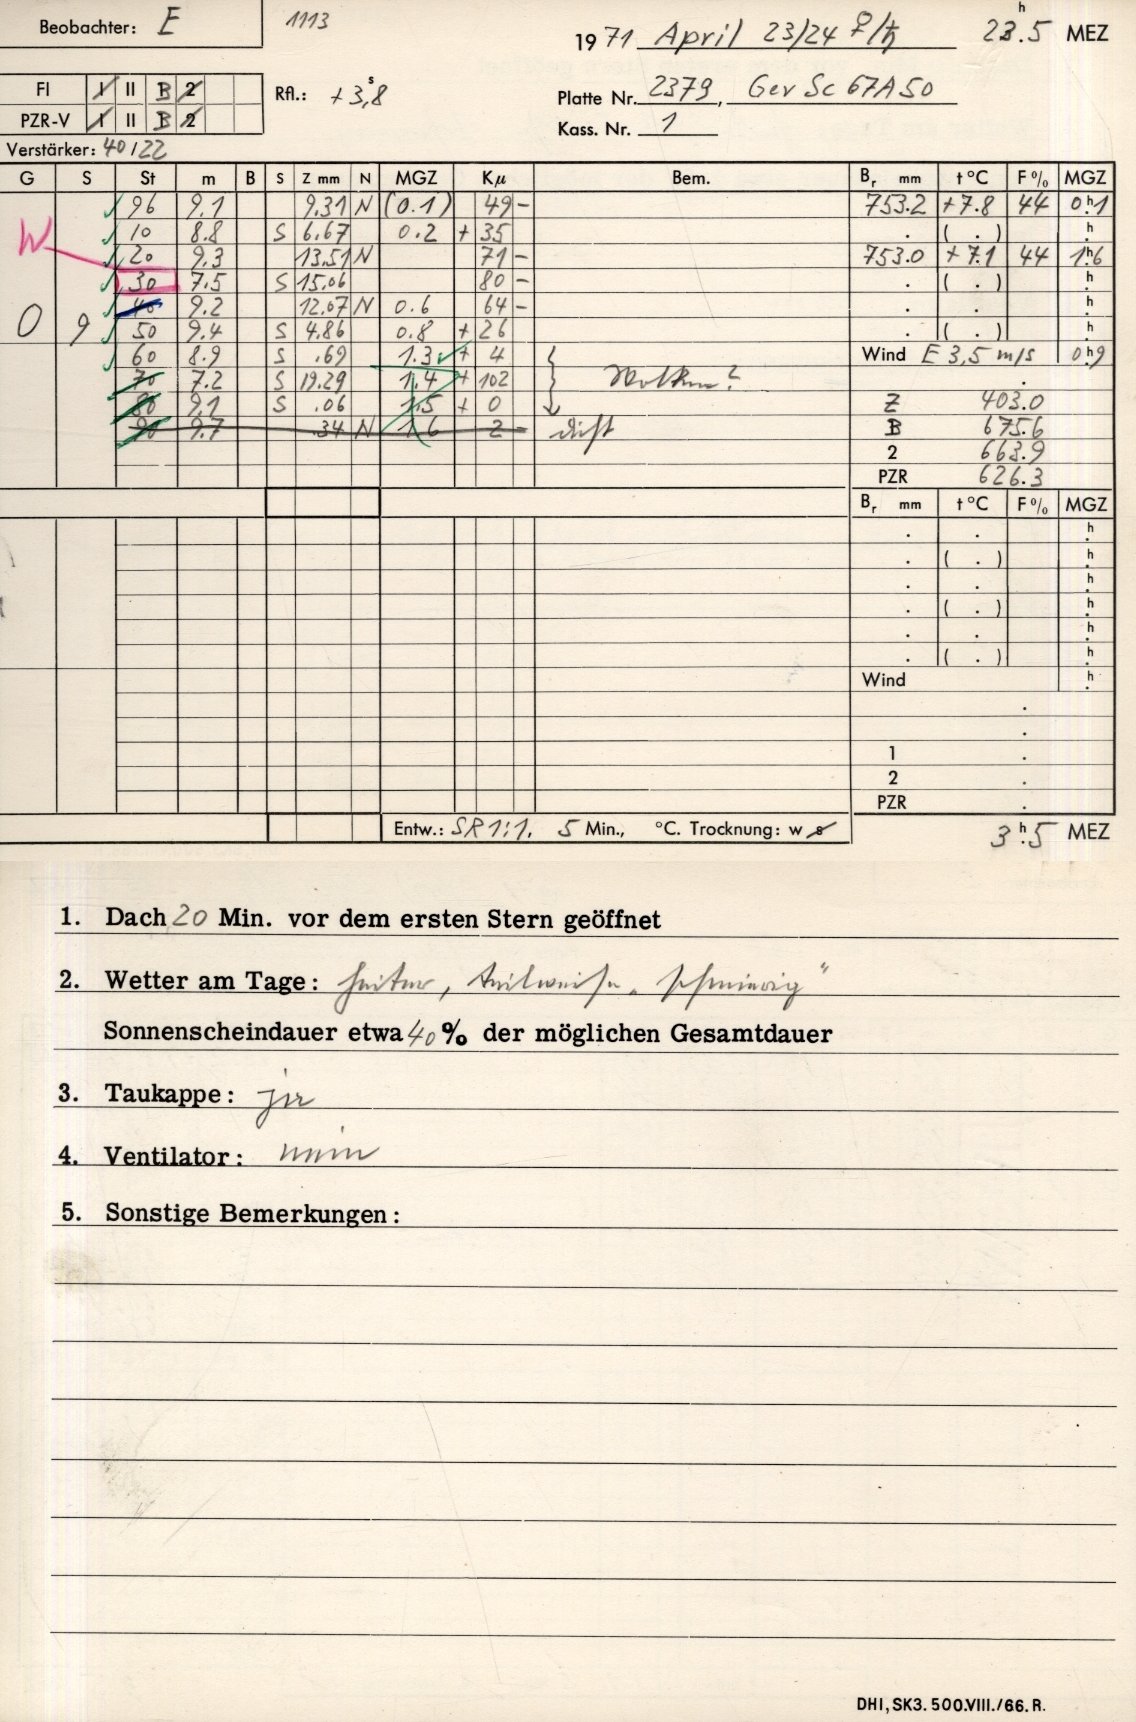 Beobachter: E 1113
1971 April 23/24 ♀/♄ 23h.5 MEZ
FI I II B 2
PZR-V I II B 2
Rfl.: +3,s8
Platte Nr. 2379, Gev Sc 67A50
Kass. Nr. 1
Verstärker: 40/22
G S St m B S Z mm N MGZ Kµ Bem. Br mm t°C F% MGZ
✓ 96 9.1 9.31 N (0.1) 49 - 753.2 +7.8 44 0h.1
✓ 10 8.8 S 6.67 0.2 + 35 . ( . ) h.
W ✓ 20 9.3 13.51 N 71 - 753.0 +7.1 44 1h.6
✓ 30 7.5 S 15.06 80 - . ( . ) h.
40 9.2 12.07 N 0.6 64 - . . h.
0 9 ✓ 50 9.4 S 4.86 0.8 + 26 . ( . ) h.
✓ 60 8.9 S .69 1.3 ✓ + 4 Wind E 3,5 m/s 0h.9
70 7.2 S 19.29 1.4 + 102 Wolken? .
80 9.1 S .06 1.5 + 0 Z 403.0
90 9.7 .34 N 1.6 2 - dicht B 675.6
2 663.9
PZR 626.3
Br mm t°C F% MGZ
. . h.
. ( . ) h.
. . h.
. ( . ) h.
. . h.
. ( . ) h.
Wind h.
.
.
1 .
2 .
PZR .
Entw.: SR 1:1. 5 Min., °C. Trocknung: w s 3h.5 MEZ
1. Dach 20 Min. vor dem ersten Stern geöffnet
2. Wetter am Tage: heiter, teilweise „schmierig“
Sonnenscheindauer etwa 40 % der möglichen Gesamtdauer
3. Taukappe: ja
4. Ventilator: nein
5. Sonstige Bemerkungen:
DHI, SK3. 500.VIII./66. R.